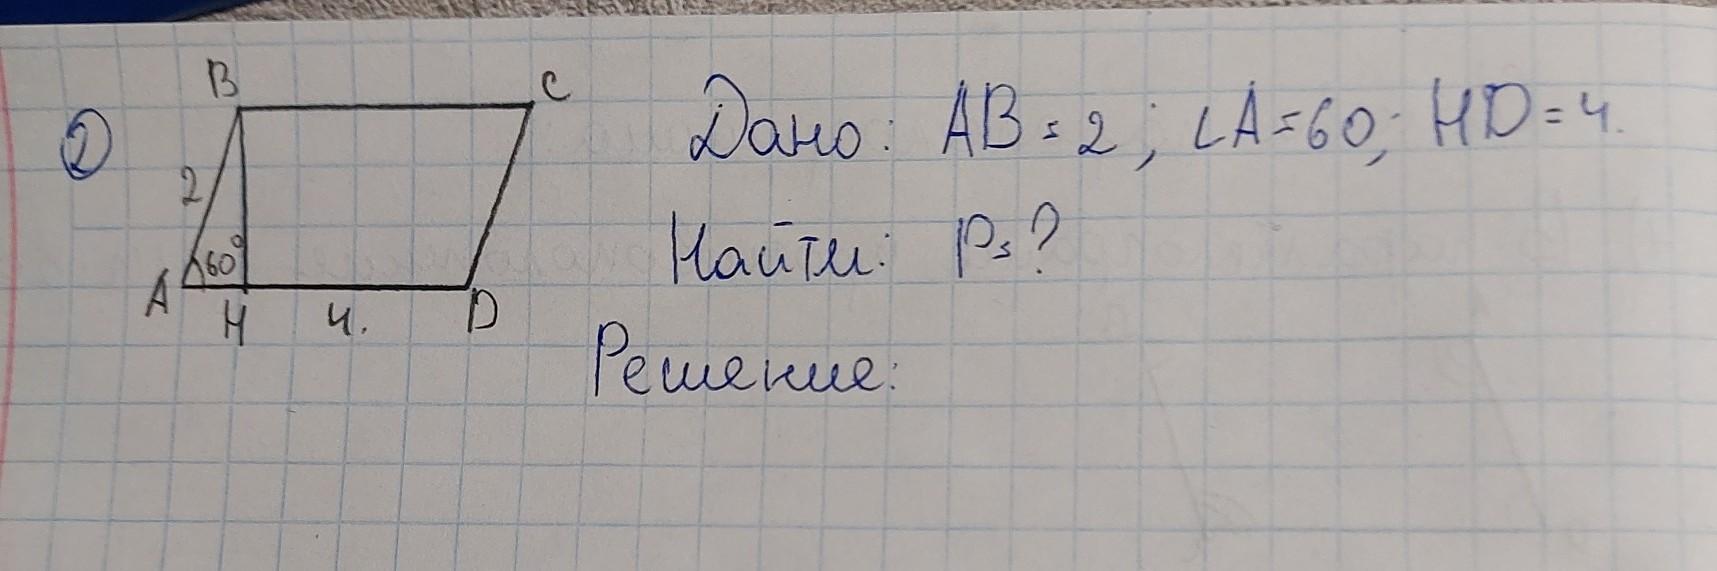 2
B C
Дано: AB = 2; ∠A=60; HD=4.
2
60°
Найти: P=?
A H 4. D
Решение: